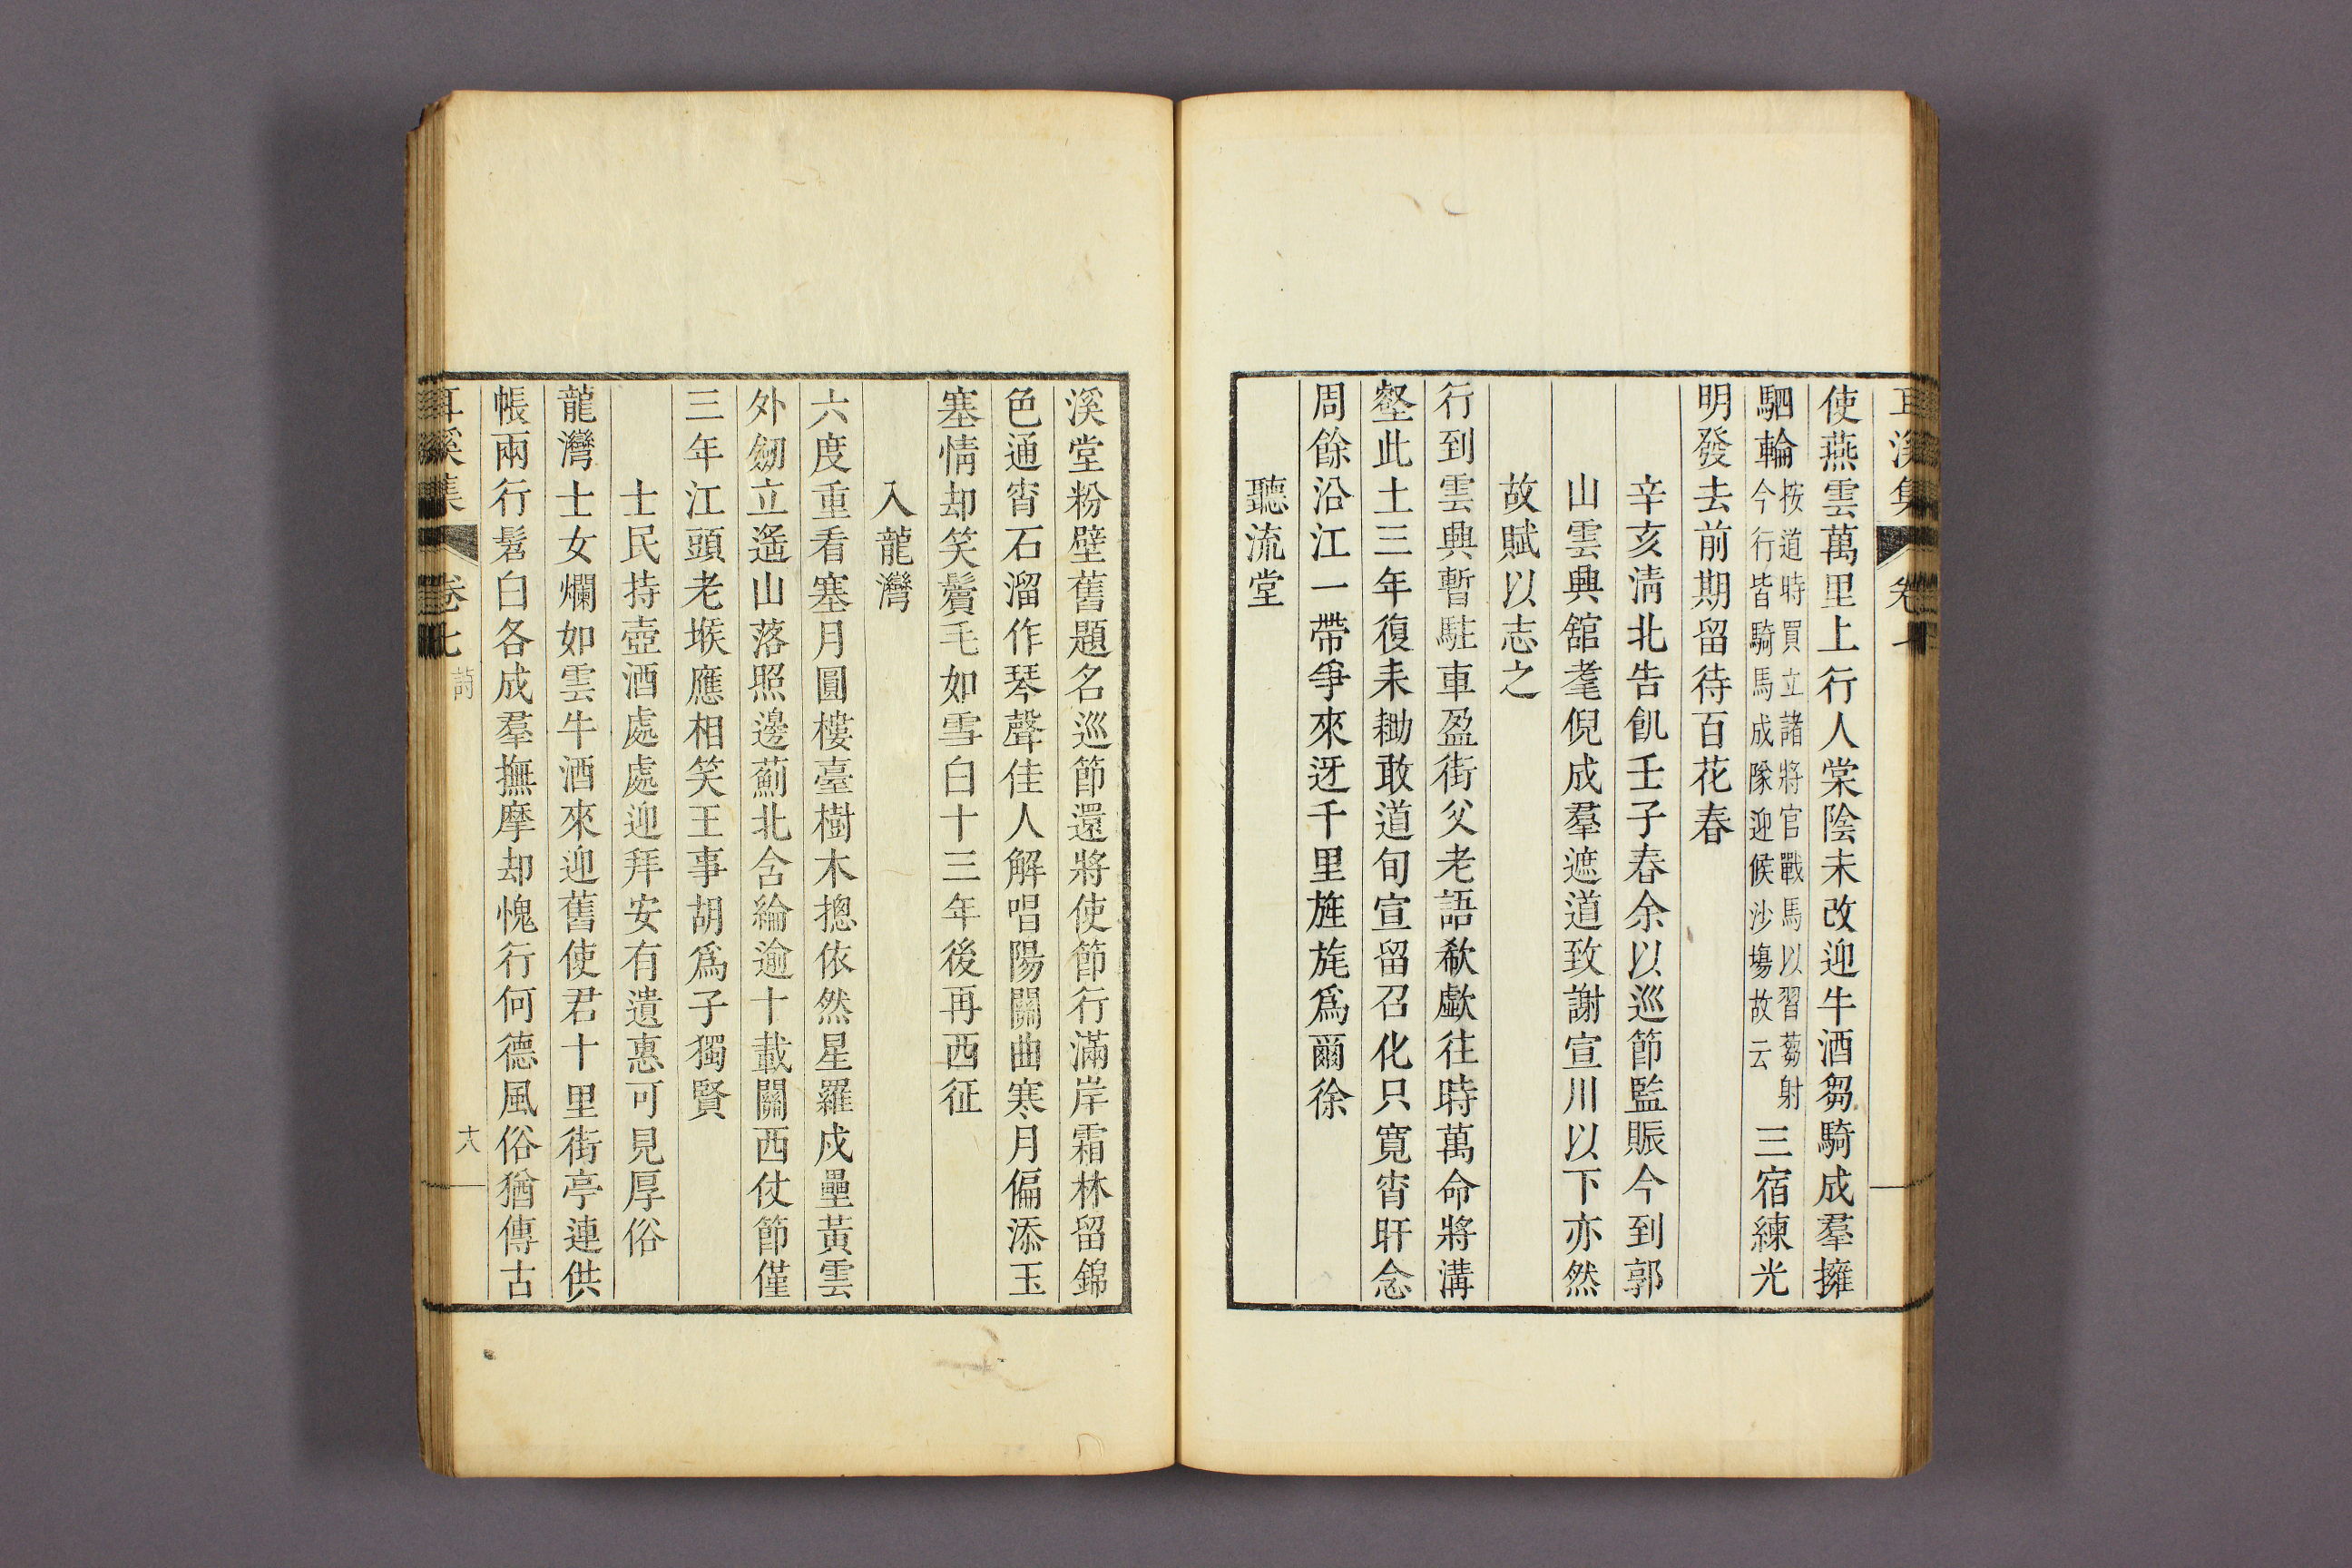 耳溪集 卷七
使燕雲萬里上行人棠陰未改迎牛酒芻騎成羣擁
駟輪按道時買立諸將官戰馬以習蒭射今行皆騎馬成隊迎候沙場故云三宿練光
明發去前期留待百花春
辛亥淸北告飢壬子春余以巡節監賑今到郭
山雲興舘耄倪成羣遮道致謝宣川以下亦然
故賦以志之
行到雲興暫駐車盈街父老語欷歔往時萬命將溝
壑此土三年復耒耡敢道旬宣留召化只寬宵旰念
周餘沿江一帶爭來迓千里旌旄爲爾徐
聽流堂
溪堂粉壁舊題名巡節還將使節行滿岸霜林留錦
色通宵石溜作琴聲佳人解唱陽關曲寒月偏添玉
塞情却笑鬢毛如雪白十三年後再西征
入龍灣
六度重看塞月圓樓臺樹木摠依然星羅戍壘黃雲
外劒立遙山落照邊薊北含綸逾十載關西仗節僅
三年江頭老堠應相笑王事胡爲子獨賢
士民持壺酒處處迎拜安有遺惠可見厚俗
龍灣士女爛如雲牛酒來迎舊使君十里街亭連供
帳兩行髫白各成羣撫摩却愧行何德風俗猶傳古
耳溪集 卷七 詩 十八